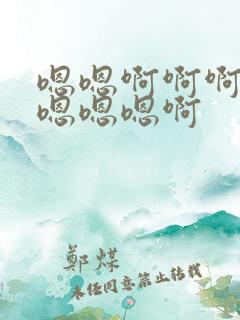 嗯嗯啊啊啊
嗯嗯嗯啊
鄭煤
未经同意禁止转载